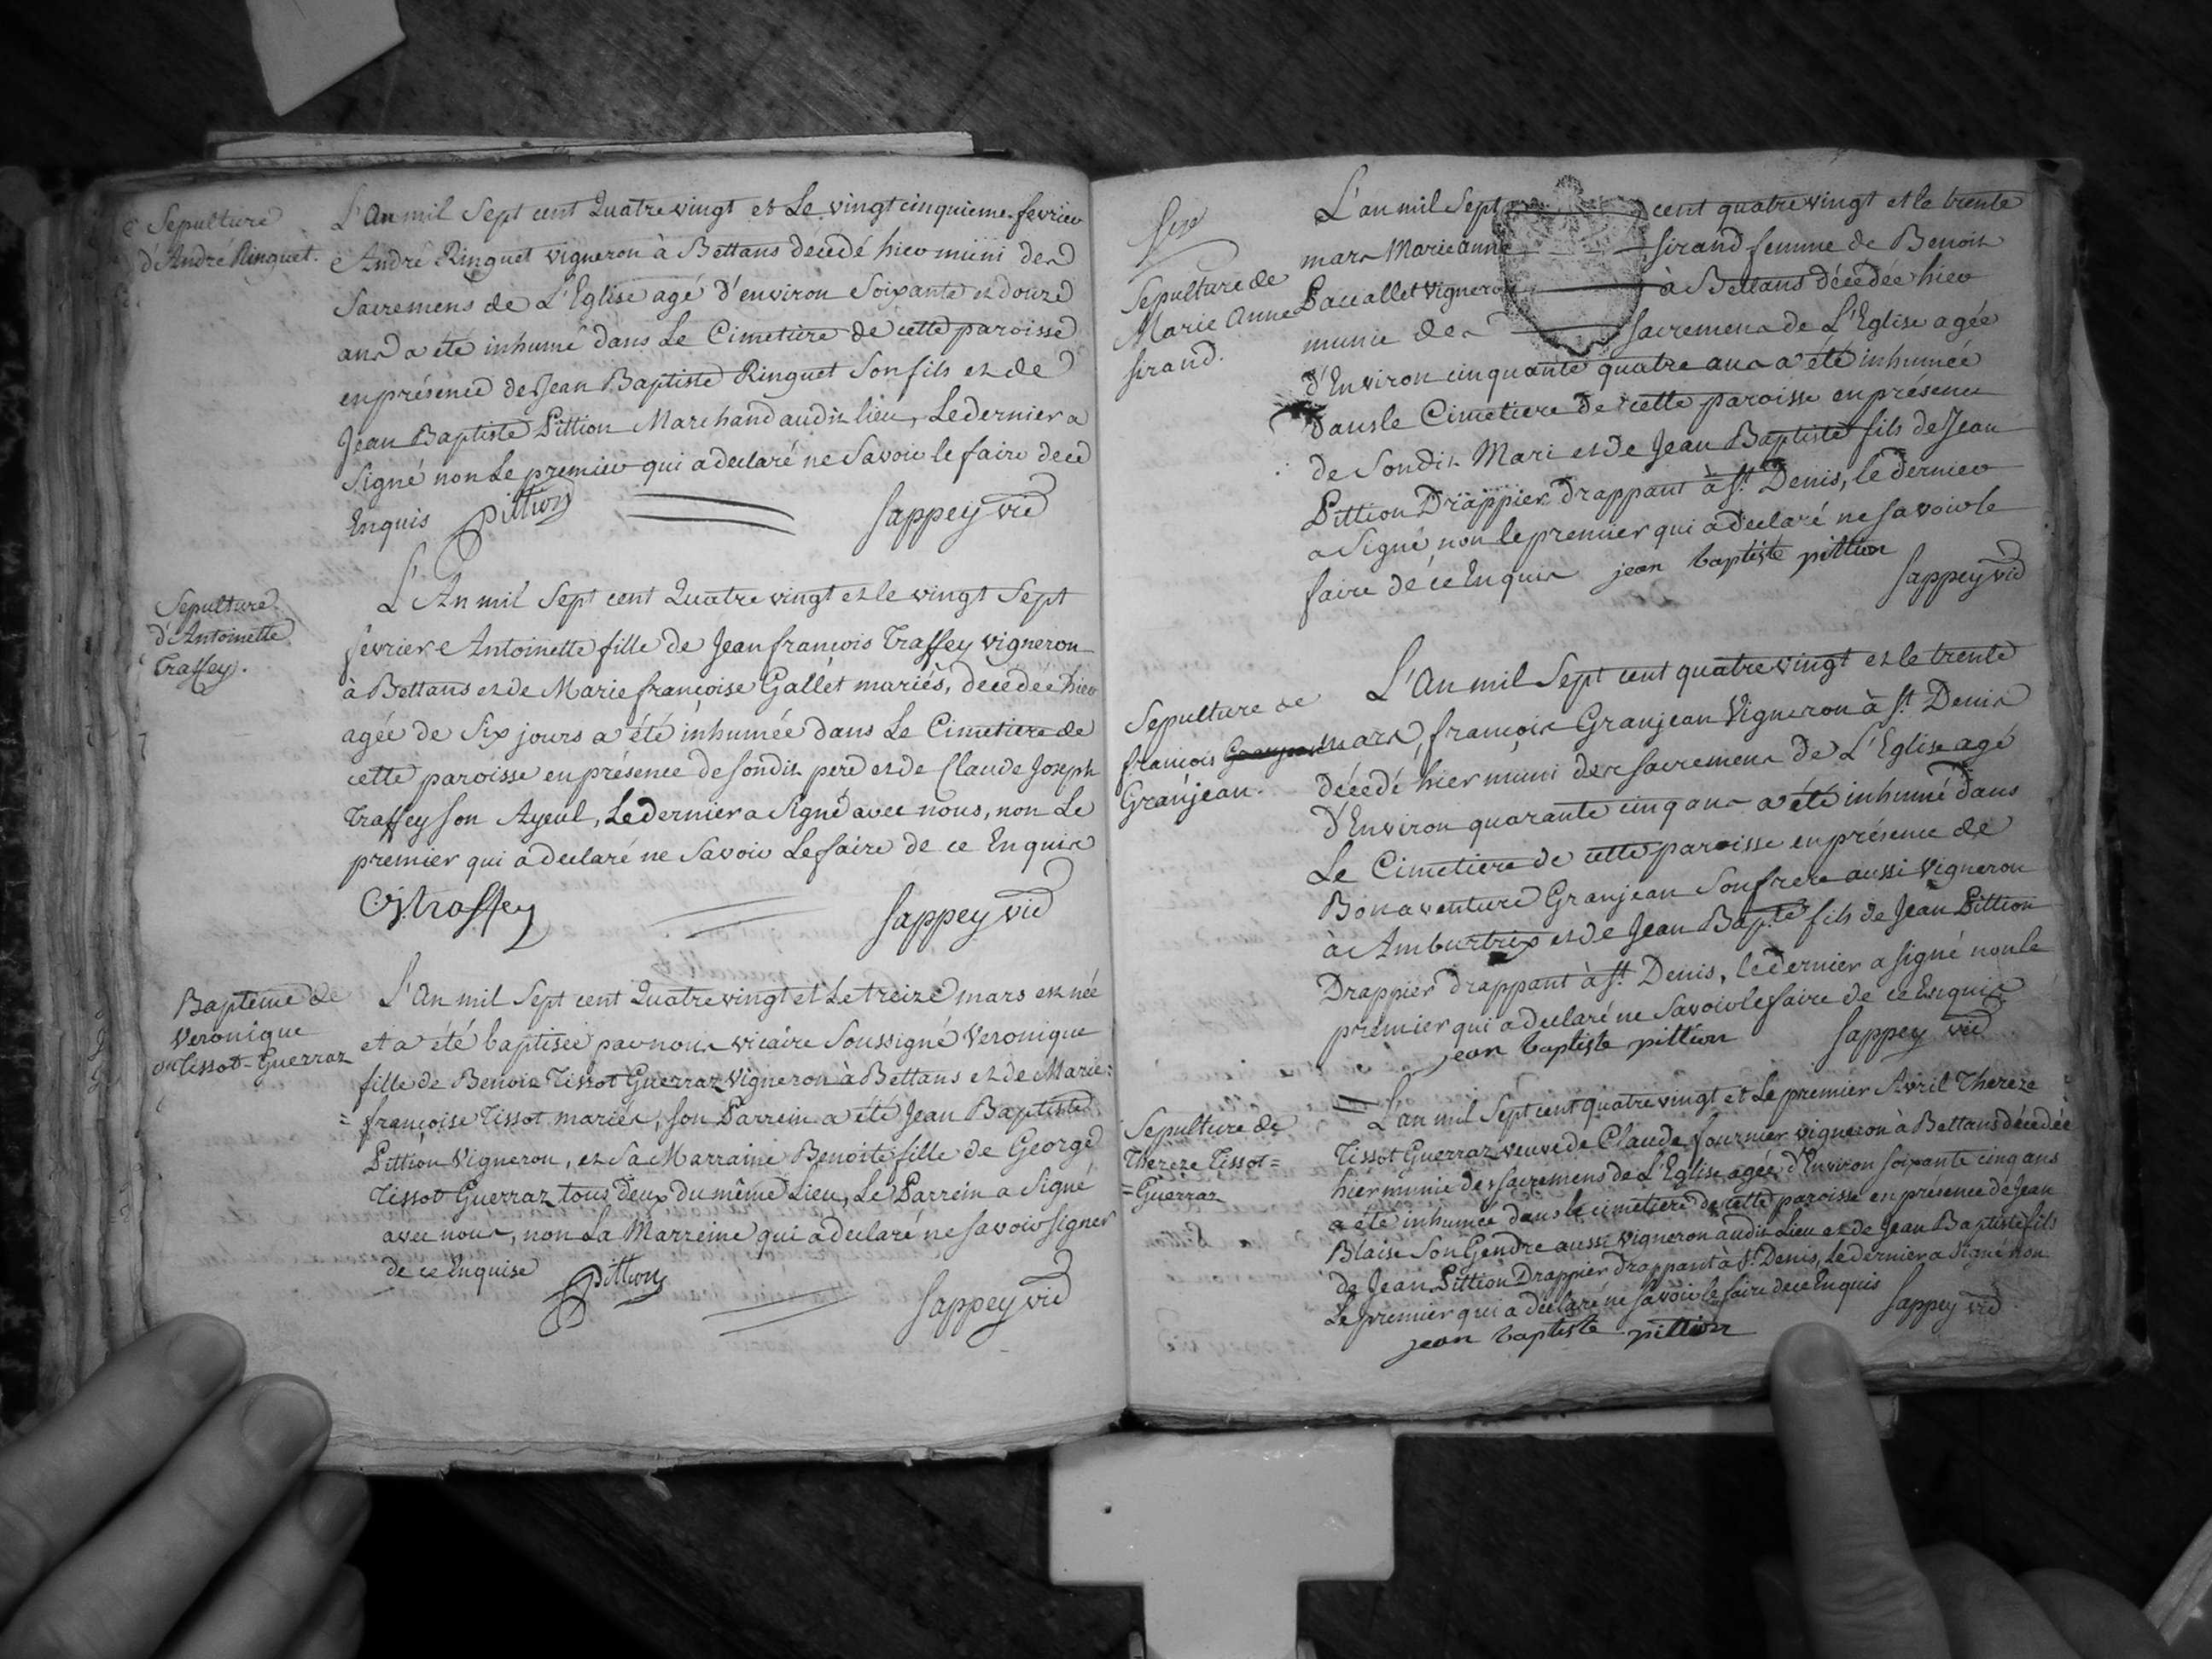 Sepulture
d'André Ringuet.
L'An mil Sept cent Quatre vingt et Le vingt cinquieme fevrier
André Ringuet vigneron à Bettans décédé hier muni des
Sacremens de L'Eglise agé d'environ Soixante et douze
ans a été inhumé dans Le Cimetiere de cette paroisse
en présence de Jean Baptiste Ringuet Son fils et de
Jean Baptiste Pittion Marchand audit lieu, Le dernier a
Signé non Le premier qui a declaré ne Savoir le faire de ce
Enquis Pittion Sappey vic
Sepulture
d'Antoinette
Traffey.
L'An mil Sept cent Quatre vingt et le vingt Sept
fevrier Antoinette fille de Jean françois Traffey vigneron
à Bettans et de Marie françoise Gallet mariés, décédée hier
agée de Six jours a été inhumée dans Le Cimetiere de
cette paroisse en présence de Sondit pere et de Claude Joseph
Traffey Son Ayeul, Le dernier a Signé avec nous, non Le
premier qui a declaré ne Savoir Le faire de ce Enquis
CJtraffey Sappey vic
Baptême de
Veronique
Tissot-Guerraz
L'An mil Sept cent Quatre vingt et Le treize mars est née
et a été baptisée par nous vicaire Soussigné Veronique
fille de Benoit Tissot Guerraz Vigneron à Bettans et de Marie=
=françoise Tissot mariés, Son Parrein a été Jean Baptiste
Pittion Vigneron, et Sa Marraine Benoite fille de George
Tissot Guerraz tous deux du même Lieu, Le Parrein a Signé
avec nous, non La Marreine qui a declaré ne Savoir Signer
de ce Enquise Pittion Sappey vic
Sepulture de
Marie Anne
Sirand.
L'an mil Sept cent quatre vingt et le trente
mars Marie anne Sirand femme de Benoit
Paccallet Vigneron à Bettans décédée hier
munie des Sacremens de L'Eglise agée
d'Environ cinquante quatre ans a été inhumée
dans le Cimetiere de cette paroisse en présence
de Sondit Mari et de Jean Baptiste fils de Jean
Pittion Drappier drappant à St. Denis, le dernier
a Signé non le premier qui a declaré ne Savoir le
faire de ce Enquis jean baptiste pittion Sappey vic
Sepulture de
françois
Granjean.
L'An mil Sept cent quatre vingt et le trente
mars, françois Granjean Vigneron à St. Denis
décédé hier muni des Sacremens de L'Eglise agé
d'Environ quarante cinq ans a été inhumé dans
Le Cimetiere de cette paroisse en présence de
Bonaventure Granjean Son frere aussi Vigneron
à Ambutrix et de Jean Bapte. fils de Jean Pittion
Drappier drappant à St. Denis, le dernier a Signé non le
premier qui a declaré ne Savoir le faire de ce Enquis
jean baptiste pittion Sappey vic
Sepulture de
Thereze Tissot=
=Guerraz
L'an mil Sept cent quatre vingt et Le premier Avril Thereze
Tissot Guerraz veuve de Claude fournier vigneron à Bettans décédée
hier munie des Sacremens de L'Eglise agée d'Environ Soixante cinq ans
a été inhumée dans le cimetiere de cette paroisse en présence de Jean
Blaise Son Gendre aussi Vigneron audit Lieu et de Jean Baptiste fils
de Jean Pittion Drappier drappant à St. Denis, Le dernier a Signé non
Le premier qui a declaré ne Savoir le faire de ce Enquis Sappey vic
jean baptiste pittion